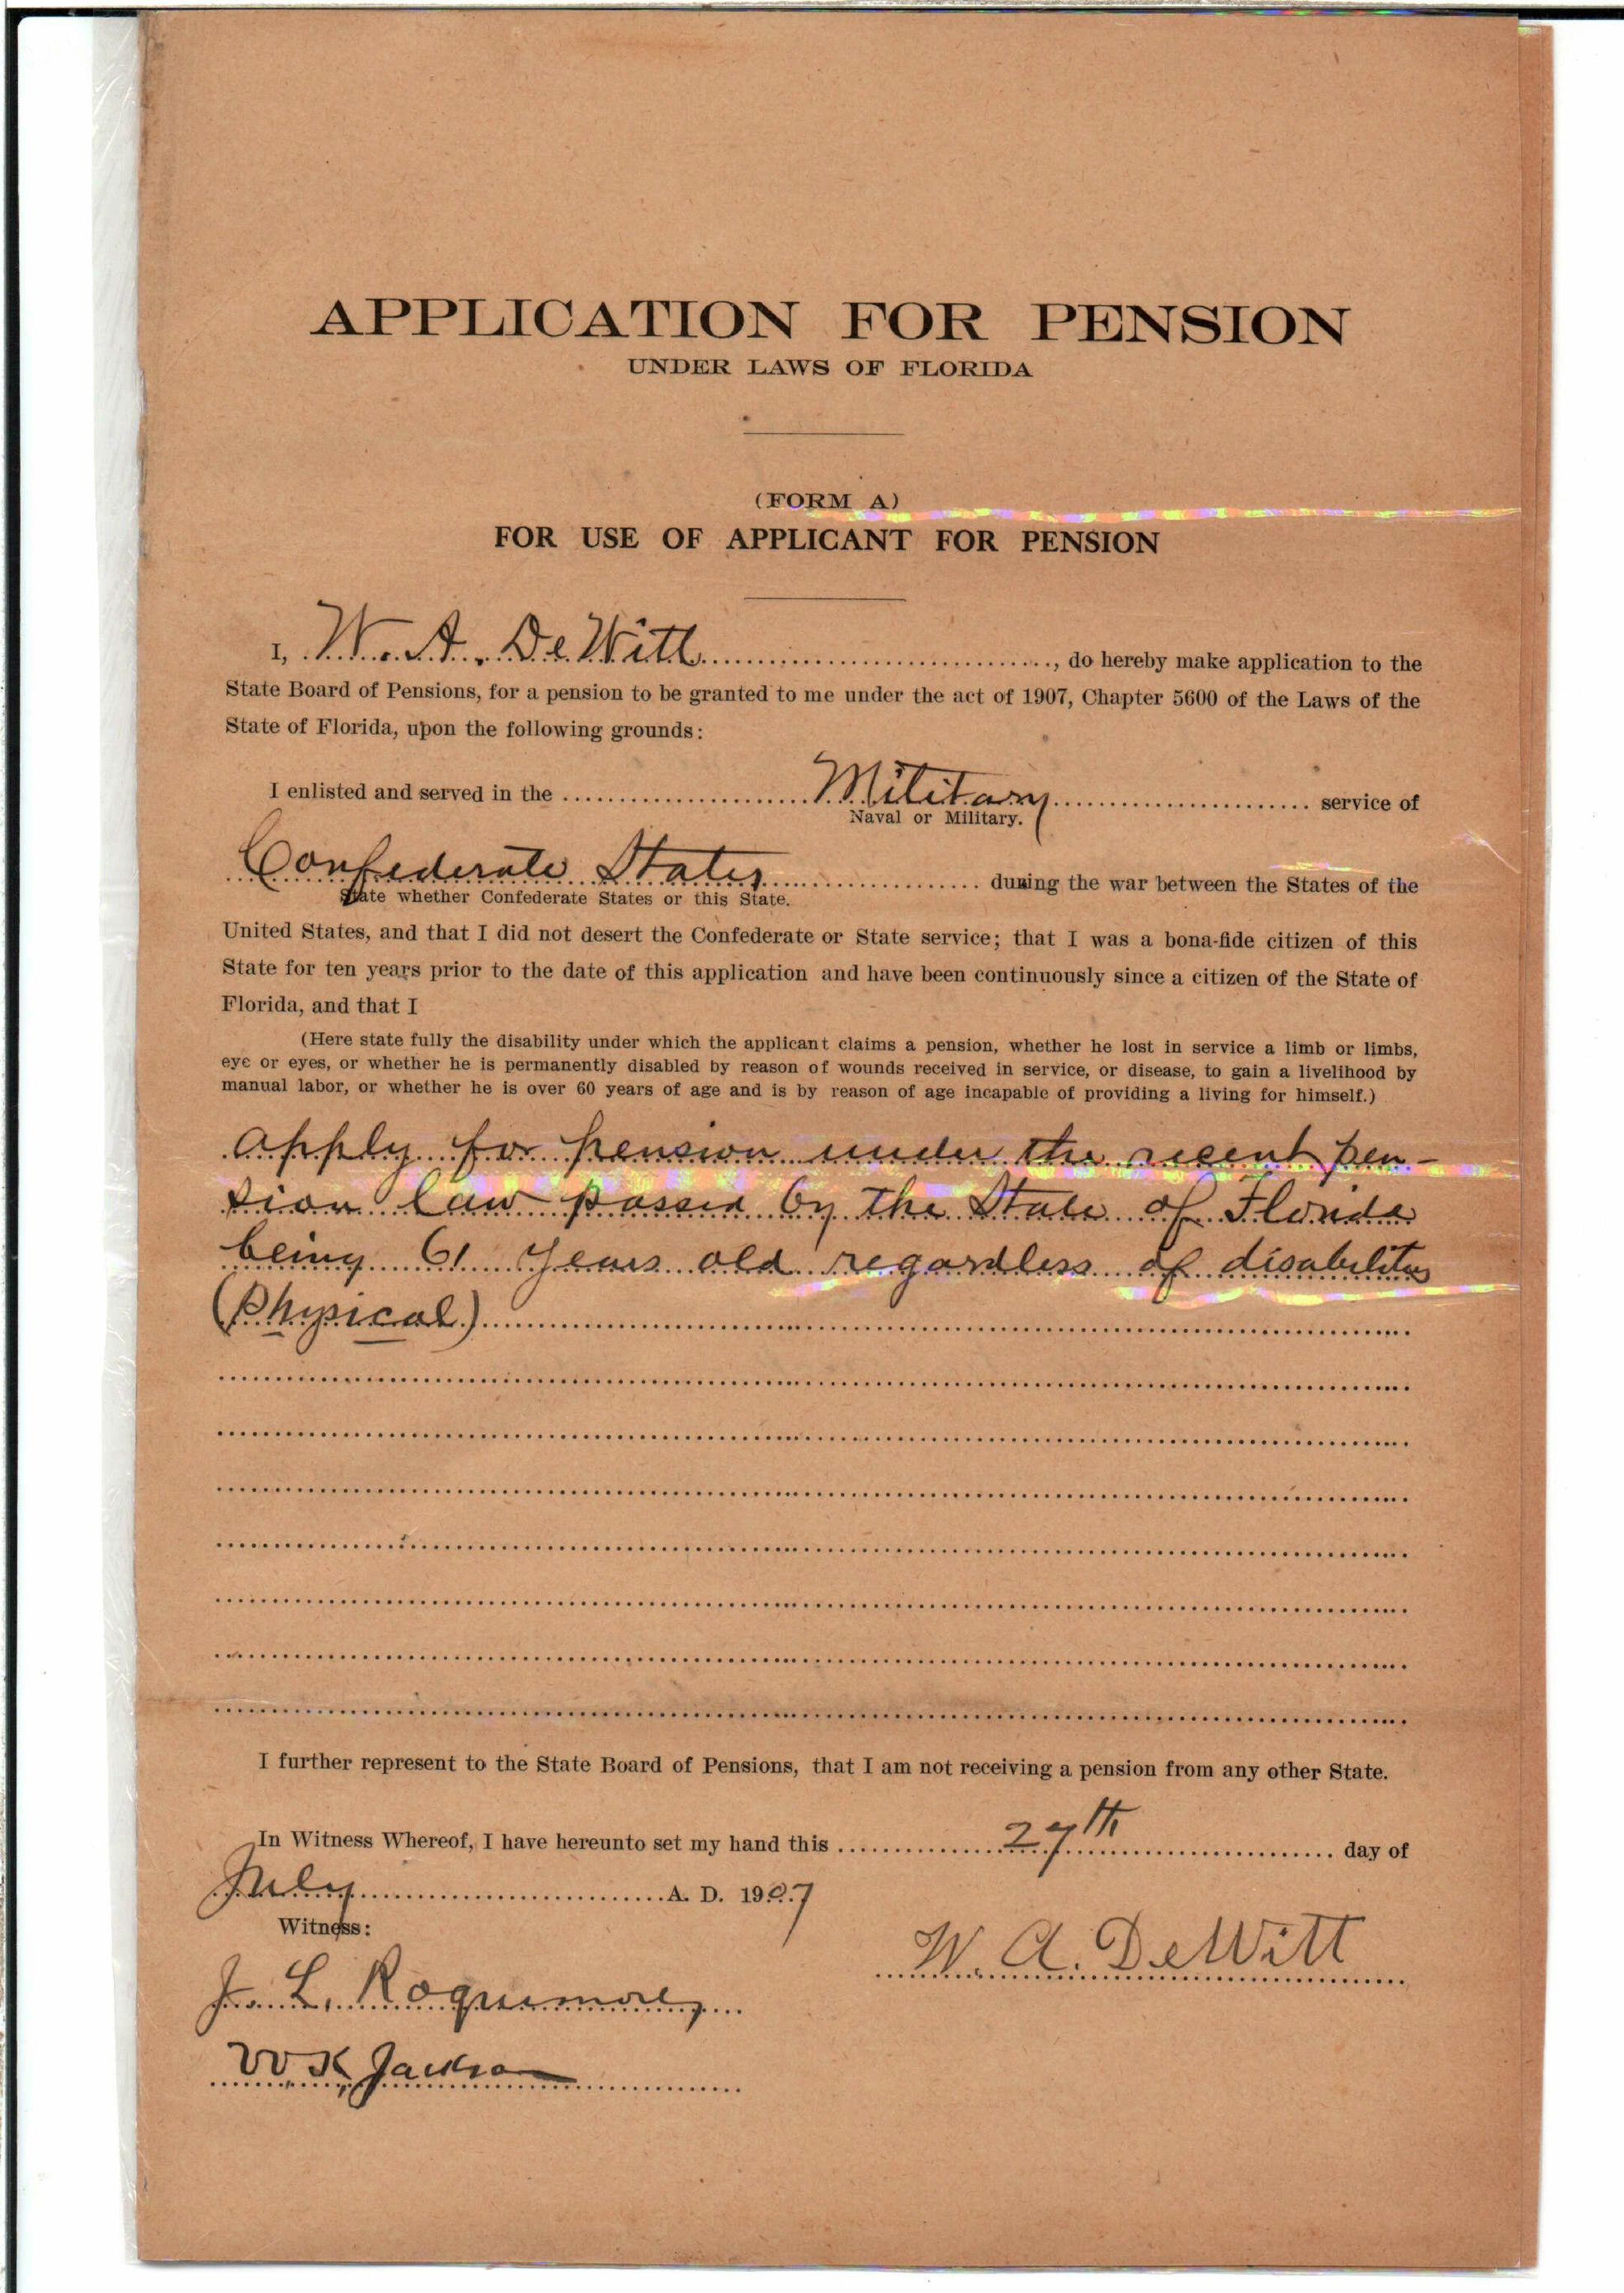 APPLICATION FOR PENSION
UNDER LAWS OF FLORIDA
(FORM A)
FOR USE OF APPLICANT FOR PENSION
I, W. A. DeWitt, do hereby make application to the
State Board of Pensions, for a pension to be granted to me under the act of 1907, Chapter 5600 of the Laws of the
State of Florida, upon the following grounds:
I enlisted and served in the Military service of
Naval or Military.
Confederate States during the war between the States of the
State whether Confederate States or this State.
United States, and that I did not desert the Confederate or State service; that I was a bona-fide citizen of this
State for ten years prior to the date of this application and have been continuously since a citizen of the State of
Florida, and that I
(Here state fully the disability under which the applicant claims a pension, whether he lost in service a limb or limbs,
eye or eyes, or whether he is permanently disabled by reason of wounds received in service, or disease, to gain a livelihood by
manual labor, or whether he is over 60 years of age and is by reason of age incapable of providing a living for himself.)
apply for pension under the recent pen-
sion law passed by the State of Florida
being 61 years old regardless of disabilities
(Physical)
I further represent to the State Board of Pensions, that I am not receiving a pension from any other State.
In Witness Whereof, I have hereunto set my hand this 27th day of
July A. D. 1907
Witness:
W. A. DeWitt
J. L. Roquemore,
W K Jackson